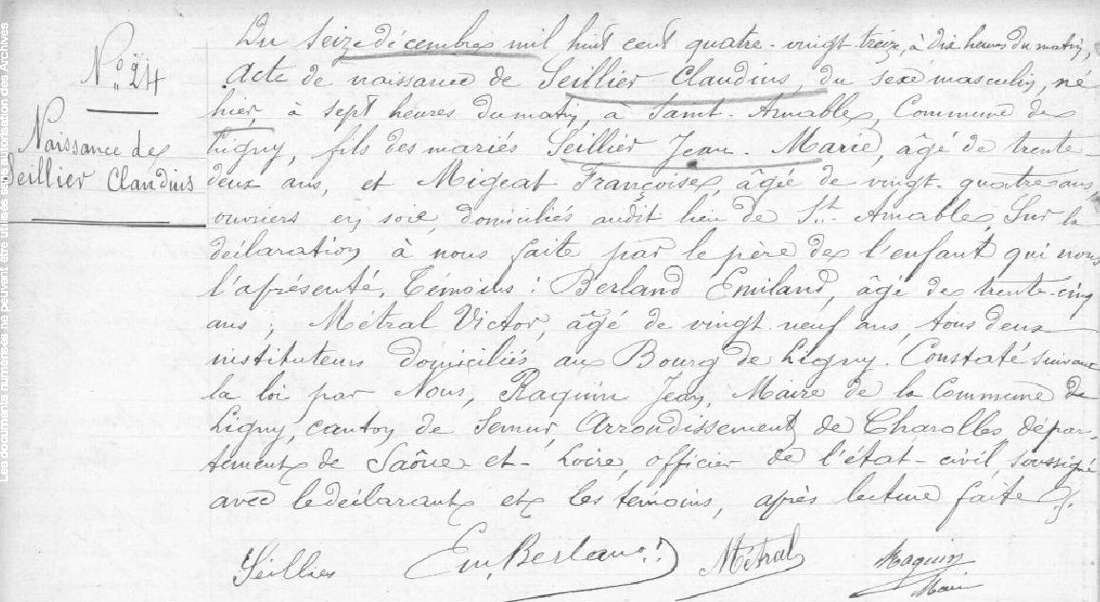 N° 24
Naissance de
Seillier Claudius
Du seize décembre mil huit cent quatre-vingt treize, à dix heures du matin,
Acte de naissance de Seillier Claudius, du sexe masculin, né
hier, à sept heures du matin, à Saint-Amable, Commune de
Ligny, fils des mariés Seillier Jean-Marie, âgé de trente-
deux ans, et Migeat Françoise, âgée de vingt-quatre ans,
ouvriers en soie, domiciliés audit lieu de St Amable, Sur la
déclaration à nous faite par le père de l'enfant qui nous
l'a présenté. Témoins : Berland Emiland, âgé de trente-cinq
ans ; Métral Victor, âgé de vingt-neuf ans, tous deux
instituteurs domiciliés au Bourg de Ligny. Constaté suivant
la loi par Nous, Raquin Jean, Maire de la Commune de
Ligny, canton de Semur, Arrondissement de Charolles, dépar-
tement de Saône-et-Loire, officier de l'état-civil, soussigné
avec le déclarant et les témoins, après lecture faite.
Seillier Em. Berland Métral Raquin
Maire